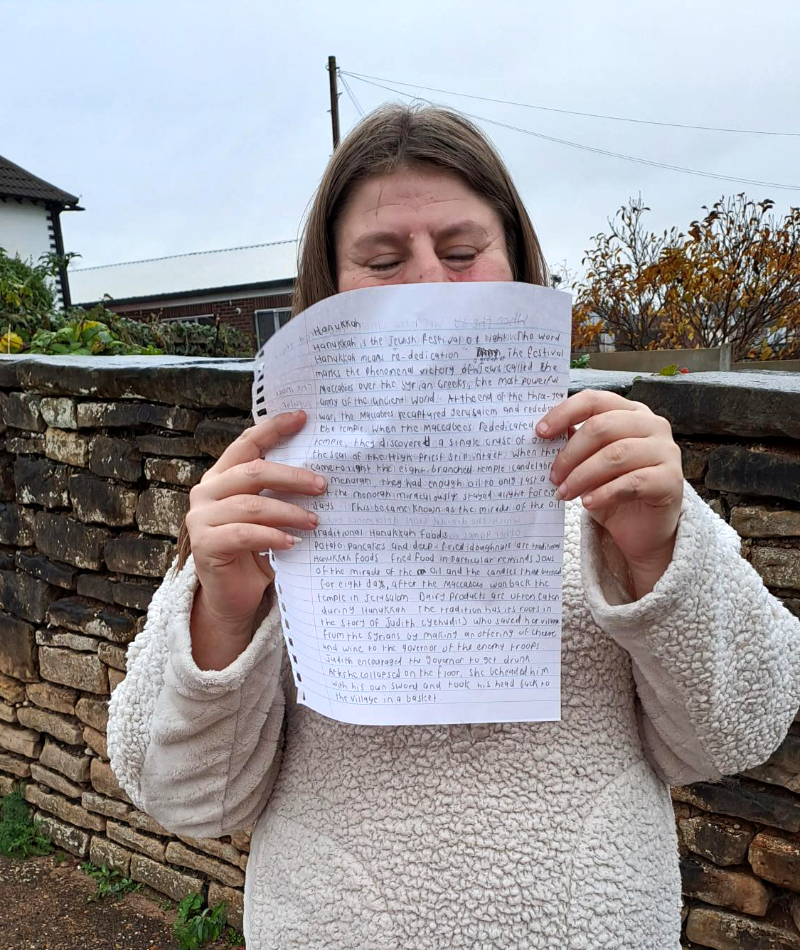 Hanukkah
Hanukkah is the Jewish festival of lights. The word
Hanukkah means re-dedication. The festival
marks the phenomenal victory of Jews called the
Maccabees over the Syrian Greeks, the most powerful
army of the ancient world. At the end of the three-year
war, the Maccabees recaptured Jerusalem and
the temple. When the Maccabees Rededicated
temple, they discovered a single cruse of oil with
the seal of the High Priest still intact. When they
came to light the eight-branched temple
menorah, they had enough oil to only just a
the menorah miraculously stayed alight for
days. This became known as the miracle of the Oil
Traditional Hanukkah Foods
Potato Pancakes and deep-fried doughnuts are traditional
Hanukkah Foods. Fried Food in particular reminds Jews
of the miracle of the Oil and the candles that burned
for eight days, after the Maccabees won back the
temple in Jerusalem. Dairy products are often eaten
during Hanukkah. The tradition has its roots in
the story of Judith (yehudis) who saved her village
from the Syrians by making an offering of cheese
and wine to the governor of the enemy troops
Judith encouraged the governor to get drunk
she collapsed on the floor, she beheaded him
with his own sword and took his head back to
the village in a basket